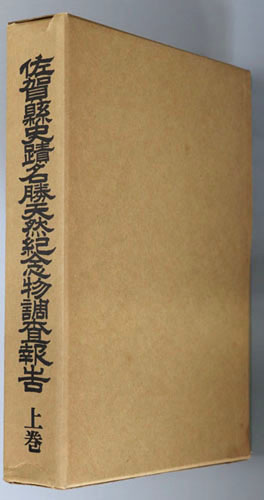 佐賀縣史蹟名勝天然紀念物調査報告 上巻